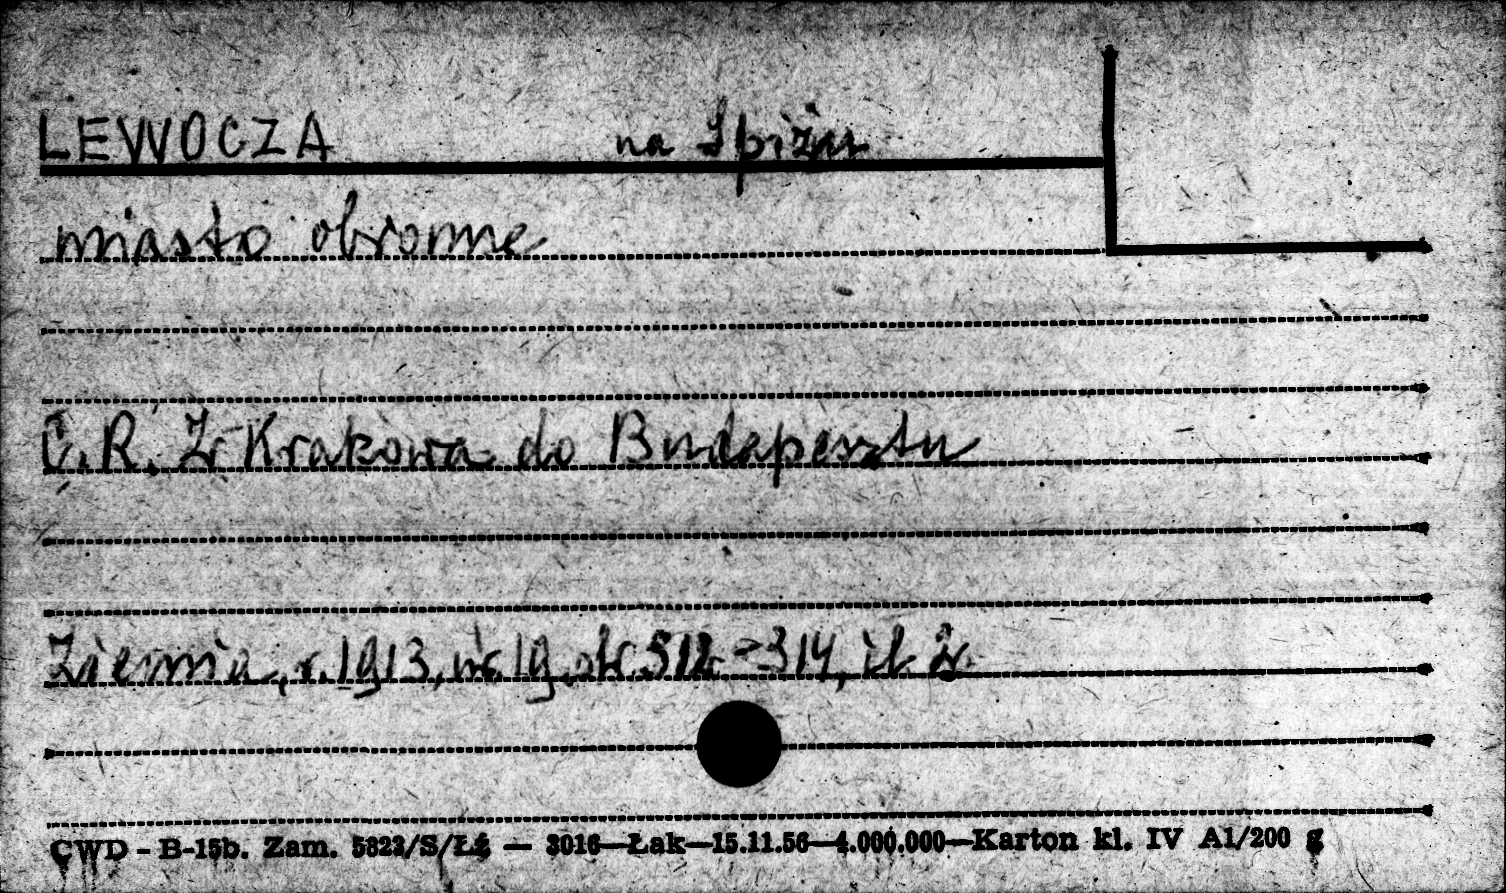 LEWOCZA na Spiżu
miasto obronne
C. R. Z Krakowa do Budapesztu
Ziemia, r. 1913, nr. 19, str. 312-314, il 2.
CWD - B-15b. Zam. 5823/S/Łź — 3016—Łak—15.11.56—4.000.000—Karton kl. IV A1/200 g